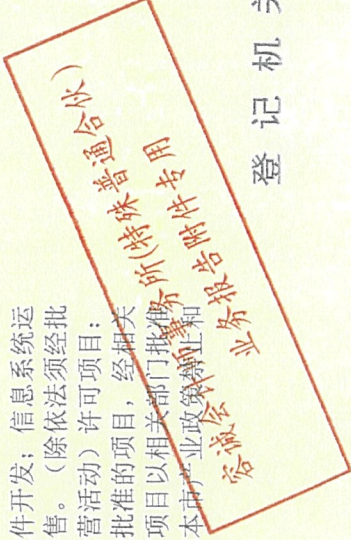 件开发；信息系统运
售。（除依法须经批
营活动）许可项目：
批准的项目，经相关
项目以相关部门批准
本市产业政策禁止和
登记机关
容诚会计师事务所(特殊普通合伙)
业务报告附件专用